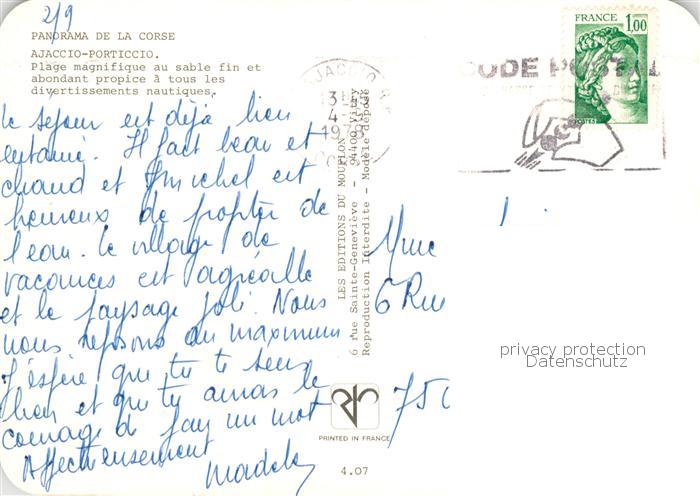 2/9
PANORAMA DE LA CORSE
AJACCIO-PORTICCIO.
Plage magnifique au sable fin et
abondant propice à tous les
divertissements nautiques.
le séjour est déjà bien
entamé. Il fait beau et
chaud et Michel est
heureux de profiter de
l'eau. Le village de
vacances est agréable
et le paysage joli. Nous
nous reposons au maximum
J'espère que tu te sens
bien et que tu auras le
courage de un mot
Affectueusement
LES EDITIONS DU MOUFLON
6 rue Sainte-Geneviève - 94400 Vitry
Reproduction Interdite - Modèle déposé
PRINTED IN FRANCE
4.07
FRANCE
1,00
POSTES
CODE POSTAL
AJACCIO
4 - 9
1978
Mme
6 Rue
750
privacy protection
Datenschutz